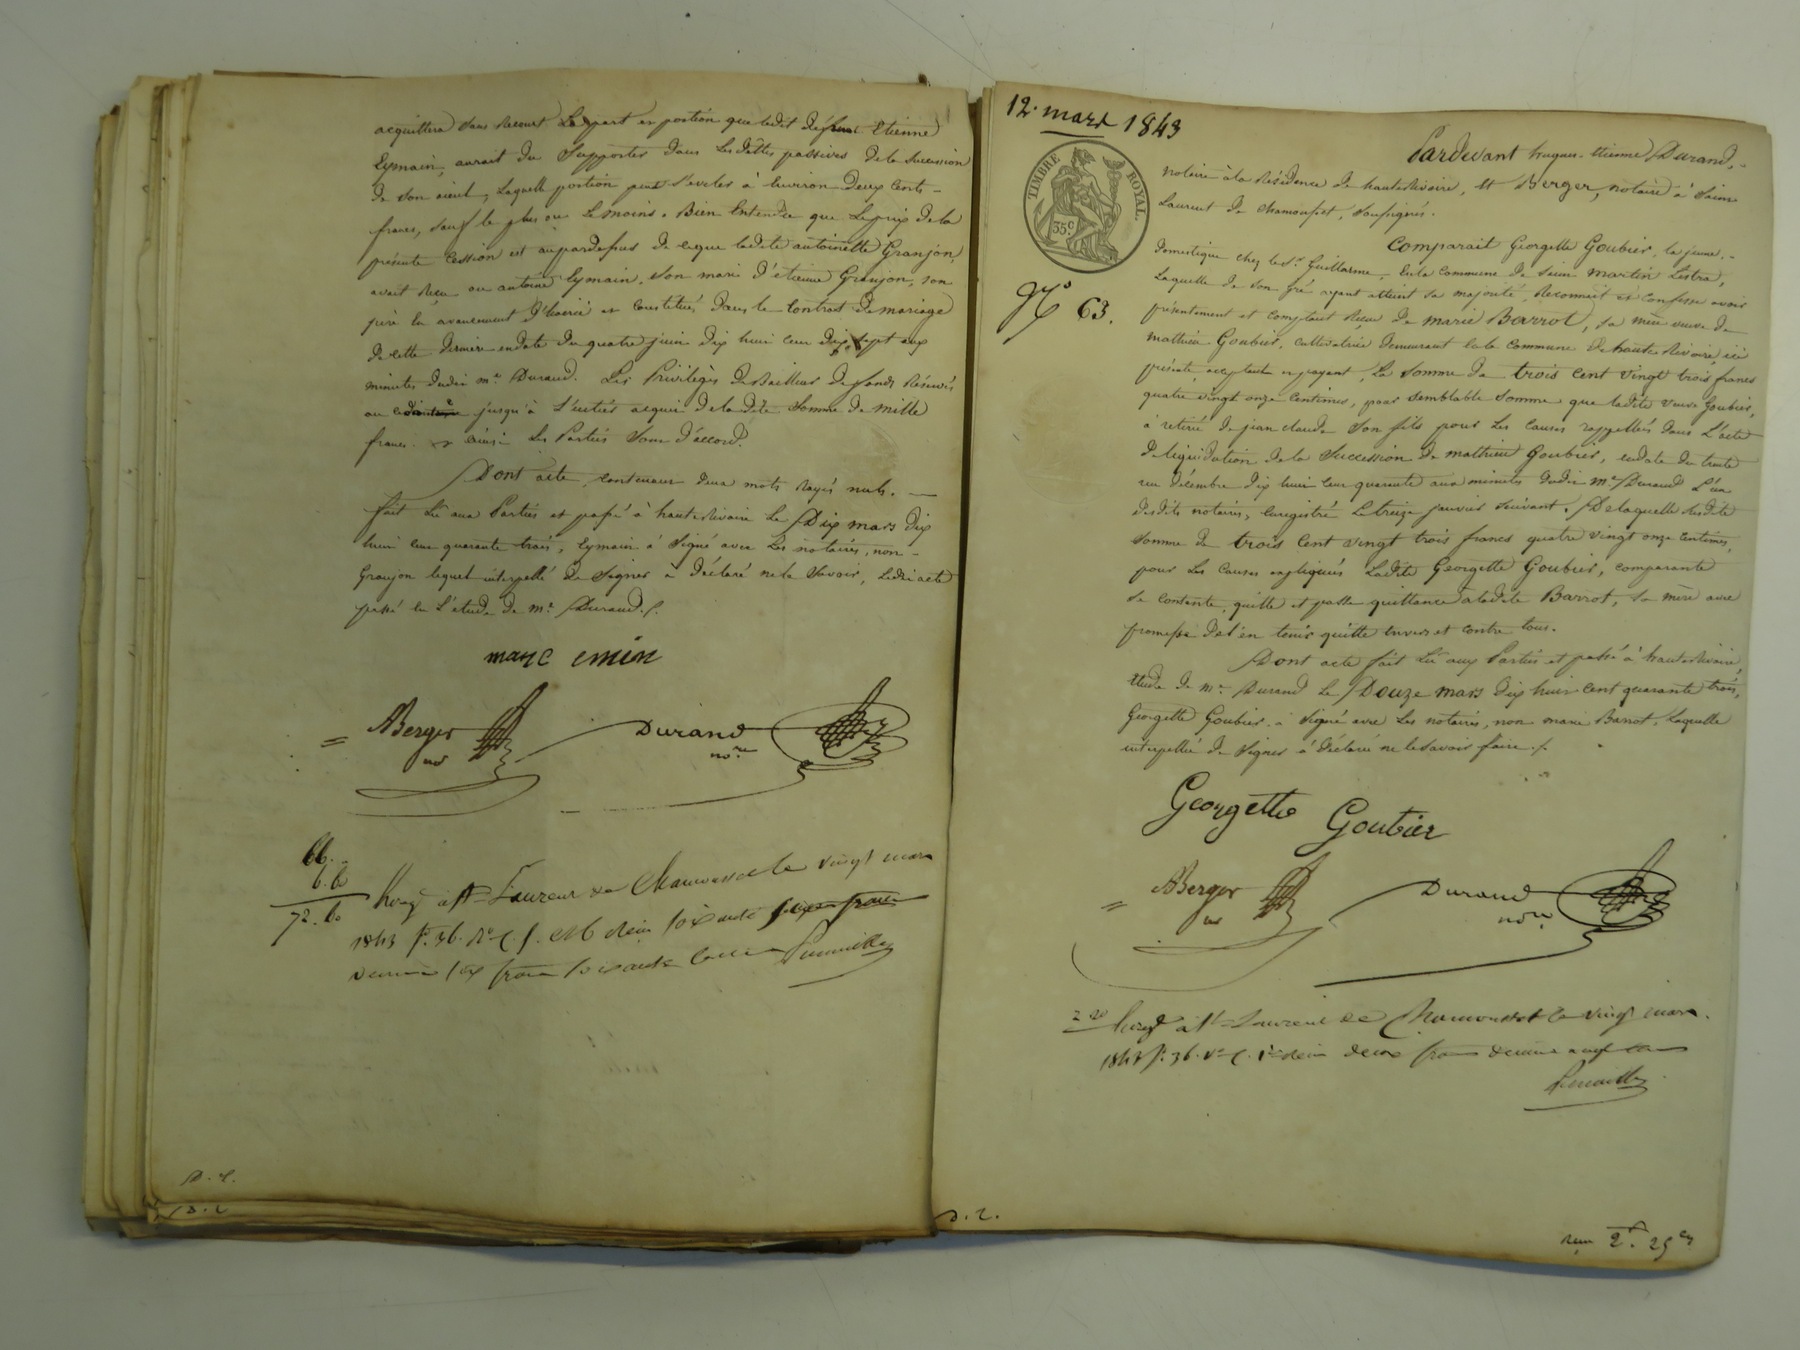 acquittera sans recours la part et portion que ledit défunt Etienne
Eymain, aurait du supporter dans les dettes passives de la succession
de son aieul, laquelle portion peut s'evaler à environ deux cents
francs, sauf le plus ou le moins. Bien entendu que le prix de la
présente cession est aupardessus de ce que ladite antoinette Granjon,
avait reçu ou antoine Eymain, son mari d'étienne Granjon, son
père en avancement d'hoirie et constitués dans le contrat de mariage
de cette dernière en date du quatre juin dix huit cent dix sept aux
minutes dudit me. Durand. Les Privilèges de Bailleur de fonds réservés
au jusqu'à l'entier acquit de ladite somme de mille
francs. ainsi les Parties sont d'accord.
Dont acte, contenant deux mots rayés nuls. —
fait Lû aux Parties et passé à hauterivoire le Dix mars dix
huit cent quarante trois, Eymain à signé avec les notaires, non-
Granjon lequel interpellé de signer à déclaré ne le savoir, ledit acte
passé en l'étude de me. Durand./.
marc emin
ABerger
no
Durand
nore
66.
6. 60
72. 60
Enregé à St Laurent de Chamousset le vingt mars
1843 fo. 36. Ro C. 5. et 6 reçu soixante six francs
decime six francs soixante centimes
D. E.
D. E
12. mars 1843
TIMBRE ROYAL.
35c.
No 63.
Pardevant hugues-etienne Durand,
notaire à la résidence de hauterivoire, et Berger, notaire à Saint
Laurent de chamousset, soussignés.
Comparait Georgette Goubier, la jeune,
domestique chez le sr. Guillarme, en la commune de saint martin Lestra,
Laquelle de son gré ayant atteint sa majorité, Reconnait et confesse avoir
présentement et comptant Reçu de marie Barrot, sa mère veuve de
mathieu Goubier, cultivatrice demeurant en la commune de hauterivoire, ici
présente, acceptante et payant, la somme de trois cent vingt trois francs
quatre vingt onze centimes, pour semblable somme que ladite veuve Goubier,
à retiré de jean claude son fils pour les causes rappellées dans L'acte
de liquidation de la succession de mathieu Goubier, en date du trente
un décembre dix huit cent quarante aux minutes dudit me. Durand l'un
desdits notaires, enregistré le treize janvier suivant. De laquelle susdite
somme de trois cent vingt trois francs quatre vingt onze centimes,
pour les causes expliquées ladite Georgette Goubier, comparante
se contente, quitte et passe quittance à ladite Barrot, sa mère avec
promesse de l'en tenir quitte envers et contre tous.
Dont acte fait Lû aux Parties et passé à hauterivoire,
étude de me. Durand le Douze mars dix huit cent quarante trois,
Georgette Goubier à signé avec les notaires, non marie Barrot, Laquelle
interpellée de signer à déclaré ne le savoir faire./.
Georgette Goubier
ABerger
no
Durand
nore
2 20
Enregé à St Laurent de Chamousset le vingt mars
1843 fo. 36. Vo C. 1re reçu deux francs decime vingt cent
D. E.
reçu 2f. 25cs